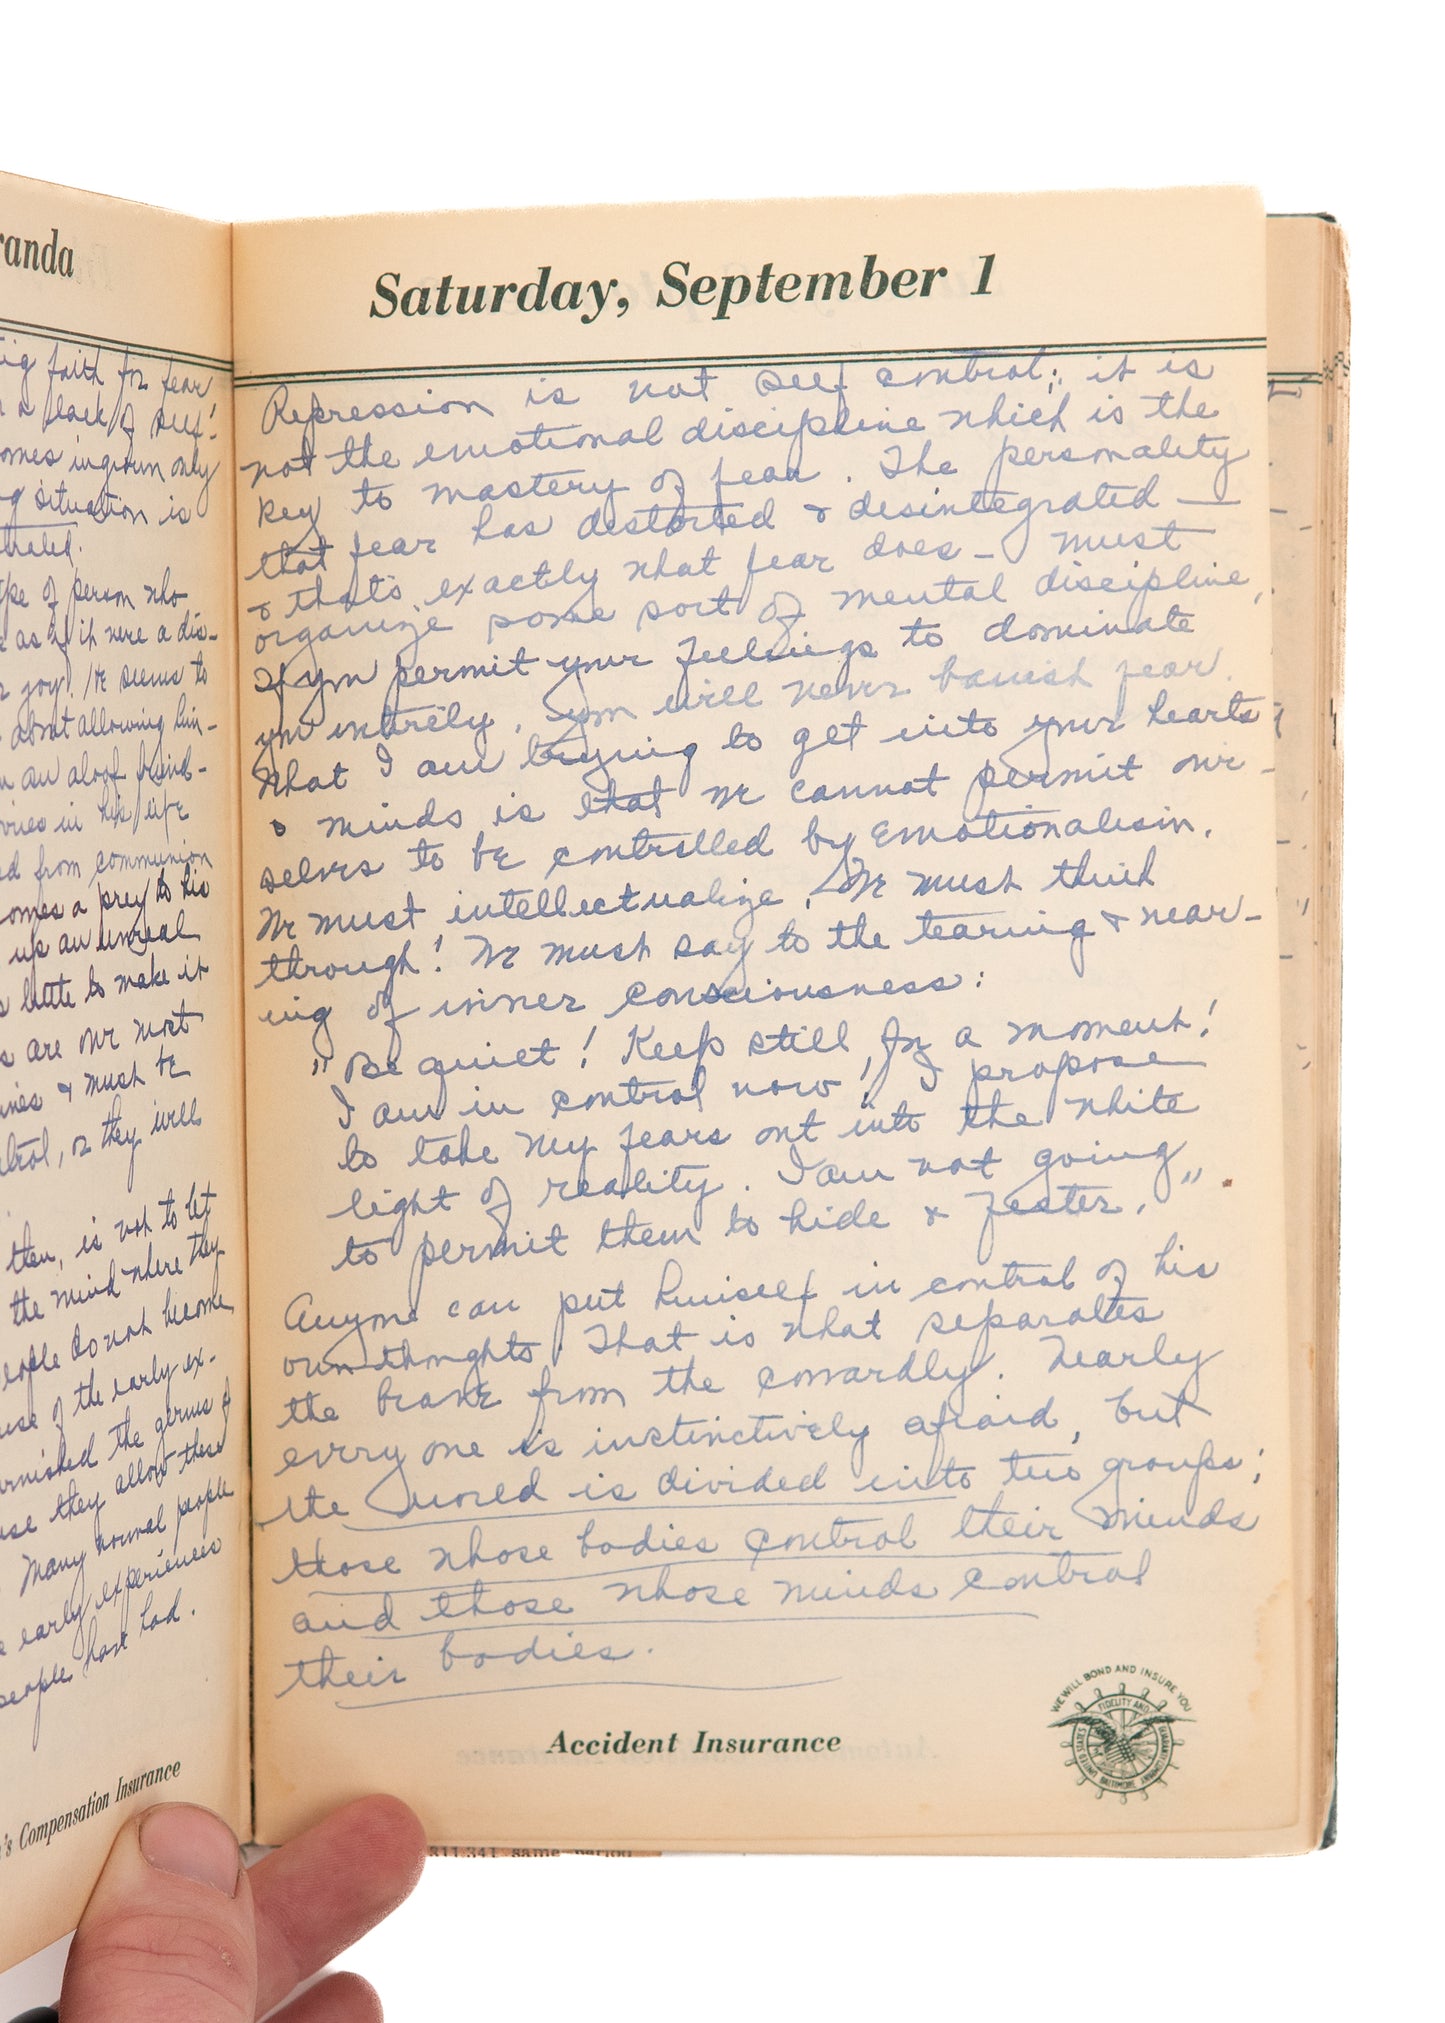 randa
ig faith for fear
a lack of self-
omes ingrown only
g situation is
trated.
ype of person who
as if it were a dis-
r joy. He seems to
about allowing him-
an aloof friend-
vries in his life
ed from communion
omes a prey to his
up an unreal
little to make it
s are our most
mies & must be
trol, or they will
then, is not to let
the mind where they
eople do not become
use of the early ex-
urnished the germs of
use they allow these
Many normal people
e early experiences
people have had.
's Compensation Insurance
Saturday, September 1
Repression is not self control; it is
not the emotional discipline which is the
key to mastery of fear. The personality
that fear has distorted & disintegrated —
& that's exactly what fear does — must
organize some sort of mental discipline,
If you permit your feelings to dominate
you entirely, you will never banish fear.
What I am trying to get into your hearts
& minds is that we cannot permit our-
selves to be controlled by Emotionalism.
We must intellectualize. We must think
through! We must say to the tearing & wear-
ing of inner consciousness:
"Be quiet! Keep still for a moment!
I am in control now! I propose
to take my fears out into the white
light of reality. I am not going
to permit them to hide & fester."
Anyone can put himself in control of his
own thoughts. That is what separates
the brave from the cowardly. Nearly
every one is instinctively afraid, but
the world is divided into two groups;
those whose bodies control their minds
and those whose minds control
their bodies.
Accident Insurance
WE WILL BOND AND INSURE YOU
UNITED STATES FIDELITY AND GUARANTY COMPANY BALTIMORE
811,341 same period